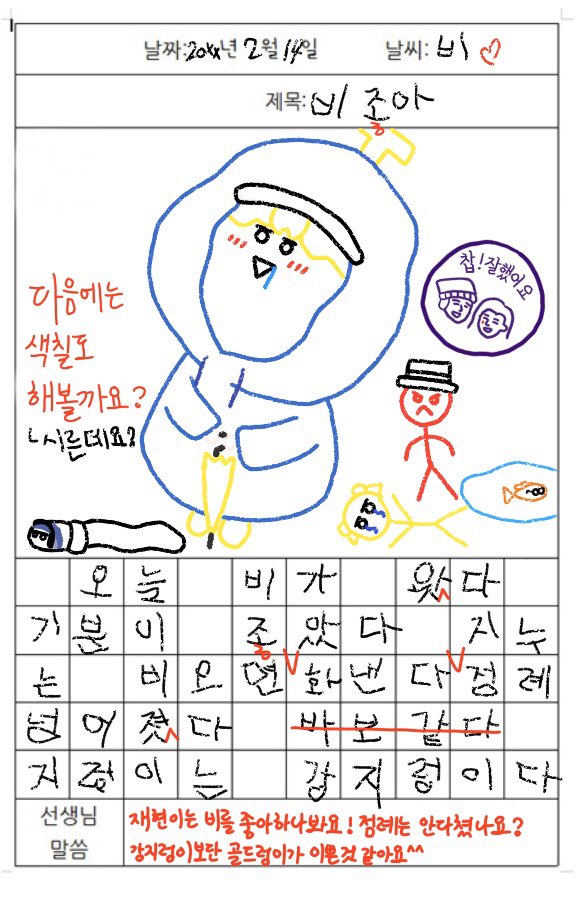 날짜:20xx년 2월 14일 날씨: 비♡
제목: 비 조아
ㅎ
찹!잘했어요
다음에는
색칠도
해볼까요?
시른데요?
오늘 비가 왔다
기분이 조았다 지누
ㅎ
는 비오면화낸다점례
넘어졌다 바보같다
지졍이는 강지렁이다
선생님
말씀
재현이는 비를 좋아하나봐요! 점례는 안다쳤나요?
강지렁이보단 골드렁이가 이쁜것 같아요^^